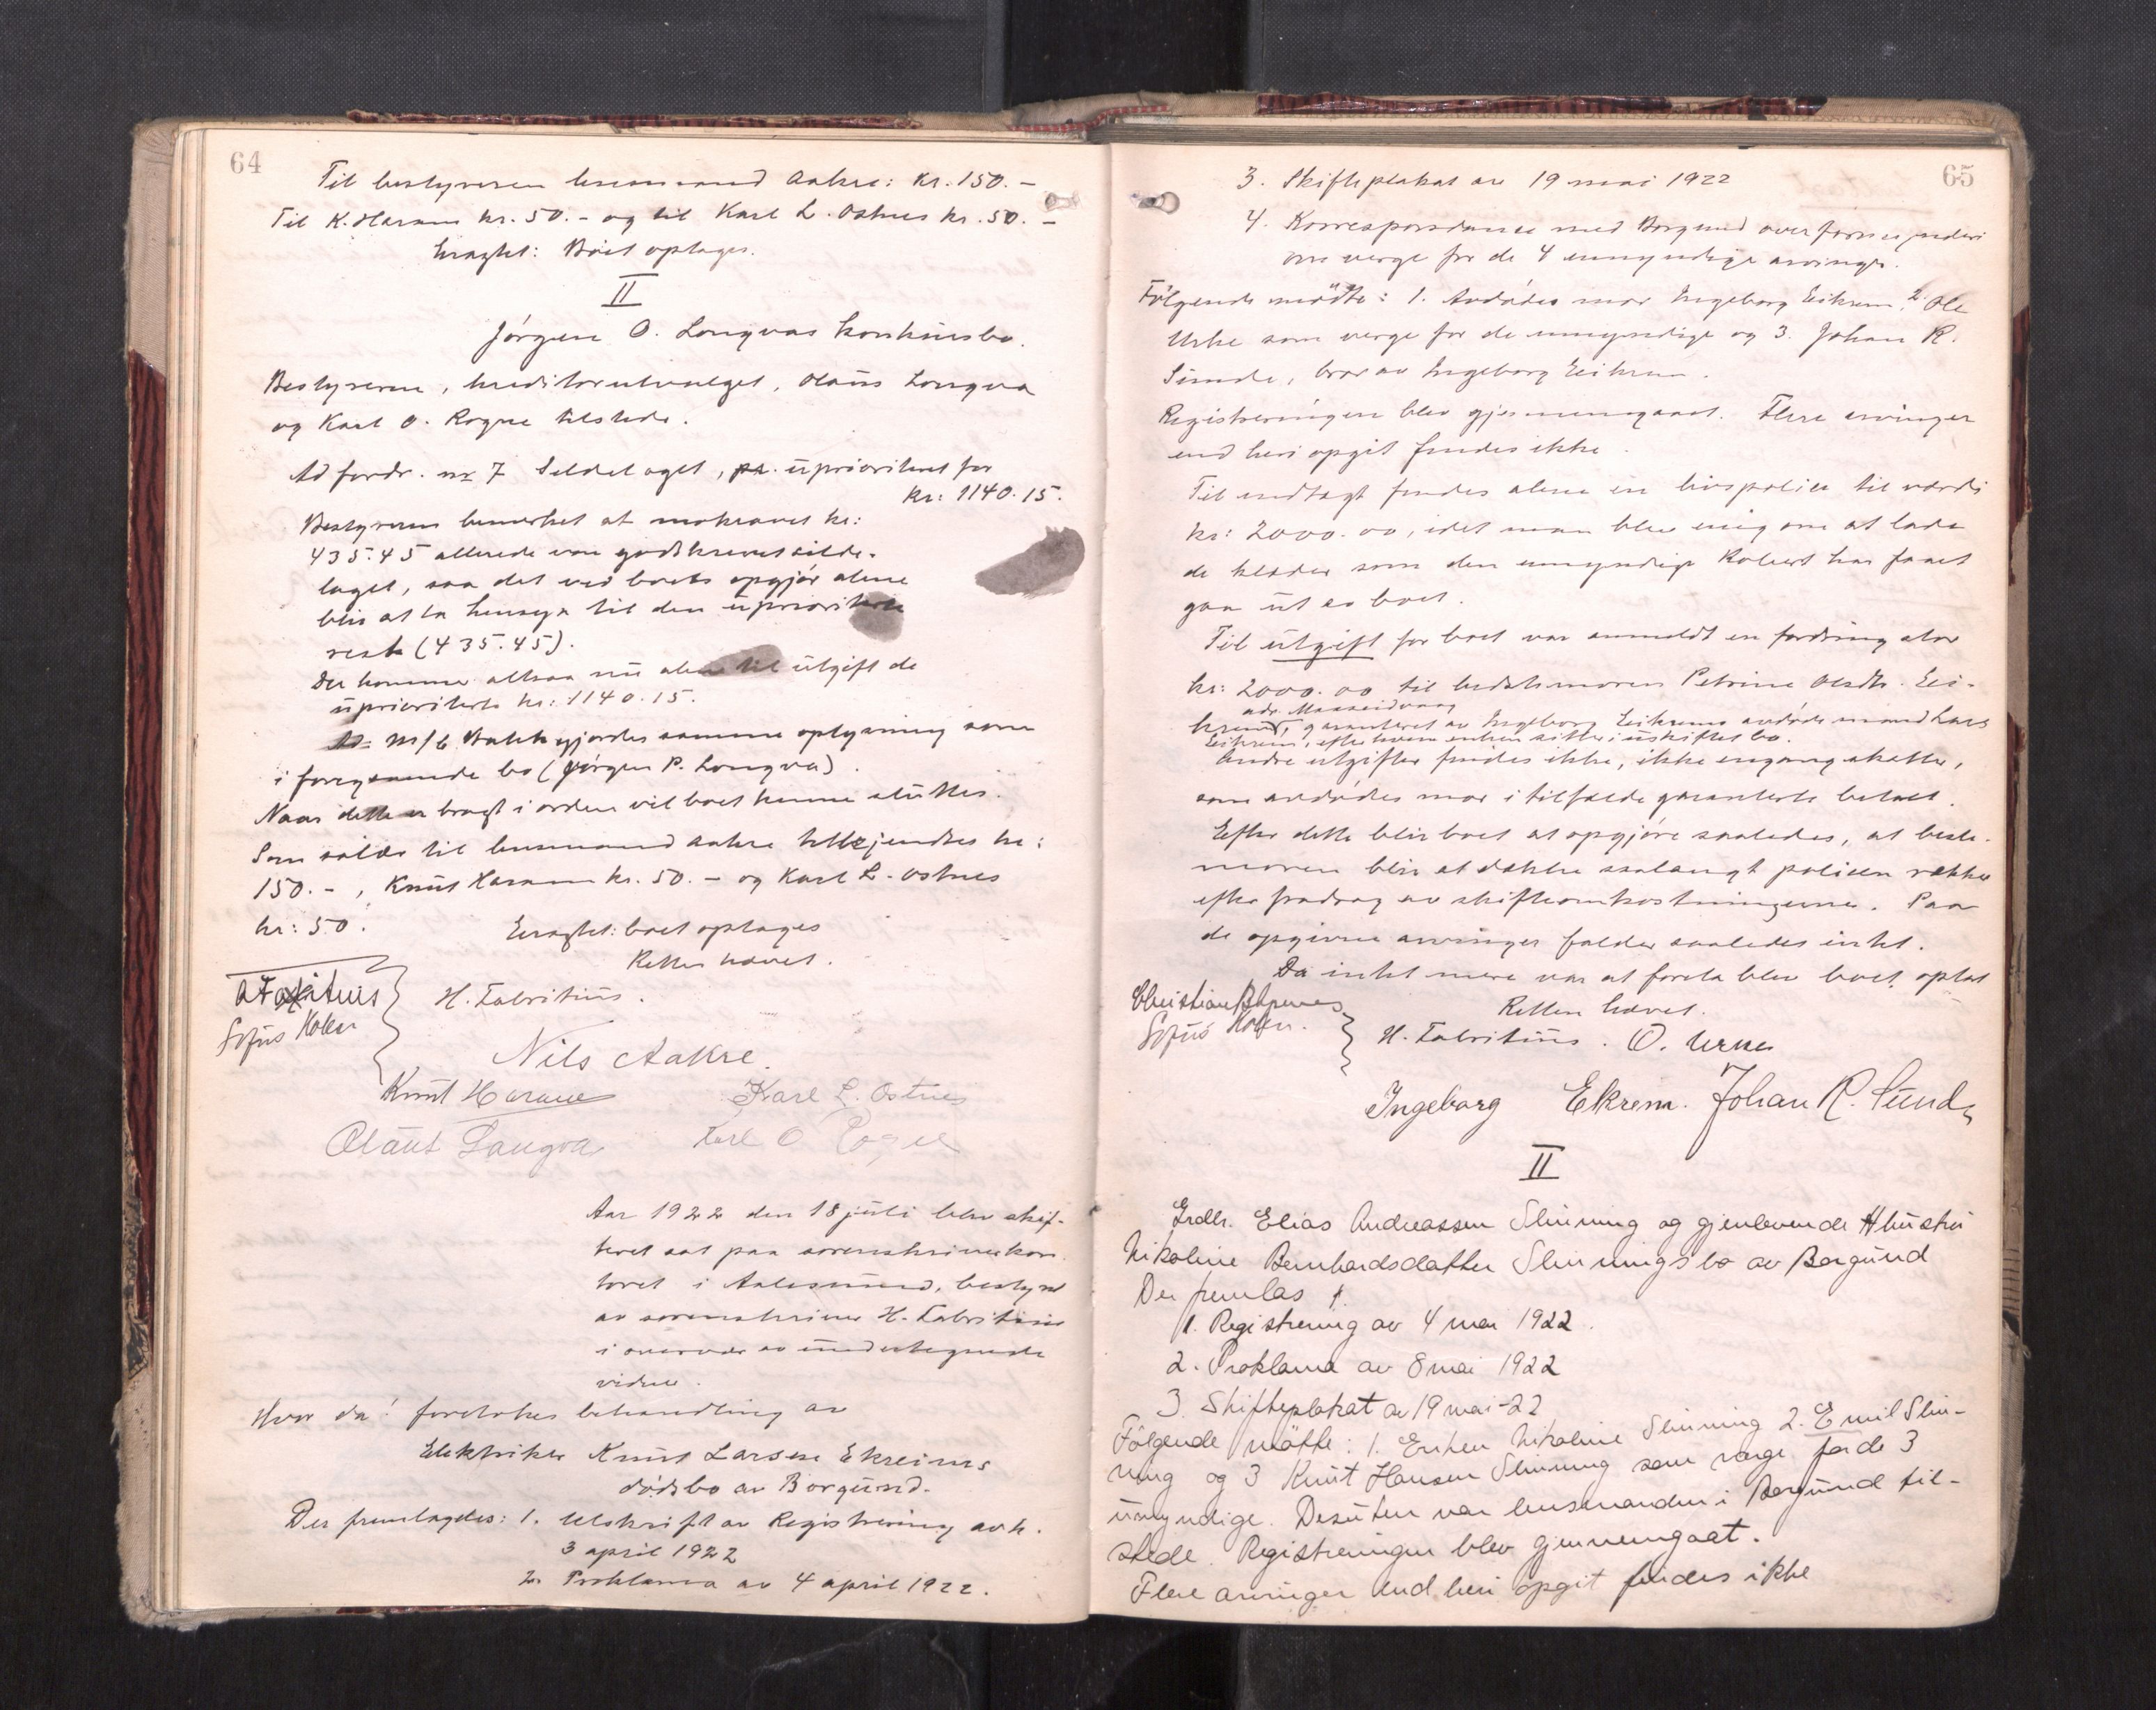 64
Til bestyreren lensmand Aakre: kr. 150.-
Til K. Haram kr. 50.- og til Karl L. Ostnes kr. 50.-
Eragtet: Boet optages.
II
Jörgen O. Longvas konkursbo.
Bestyreren, kreditorutvalget, Olaus Longva
og Karl O. Rogne tilstede.
Ad fordr. nr 7 Sildelaget, uprioritert for
kr: 1140.15.
Bestyreren bemerket at motkravet kr:
435.45 allerede var godskrevet silde-
laget, saa det ved boets opgjör alene
blir at ta hensyn til den uprioriterte
rest (435.45).
Der kommer altsaa nu alene til utgift de
uprioriterte kr: 1140.15.
Ad m/b gjordes samme oplysning som
i foregaaende bo (Jörgen P. Longva).
Naar dette er bragt i orden vil boet kunne sluttes.
Som salær til lensmand Aakre tilkjendtes kr:
150.-, Knut Haram kr. 50.- og Karl L. Ostnes
kr: 50.
Eragtet: boet optages
Retten hævet.
H. Fabritius.
Sofus Holen
Nils Aakre.
Knut Haram
Karl L. Ostnes
Olaus Longva
Karl O Rogne
Aar 1922 den 18 juli blev skif-
teret sat paa sorenskriverkon-
toret i Aalesund, bestyret
av sorenskriver H. Fabritius
i overvær av undertegnede
vidner.
Hvor da! foretokes behandling av
Elektriker Knut Larsen Ekreims
dödsbo av Borgund.
Der fremlagdes: 1. Utskrift av Registrering avh.
3 april 1922
2. Proklama av 4 april 1922.
65
3. Skifteplakat av 19 mai 1922
4. Korrespondance med Borgund overformynderi
om verge for de 4 umyndige arvinger.
Fölgende mödte: 1. Avdödes mor Ingeborg Eikrem, 2. Ole
Urke som verge for de umyndige og 3. Johan R.
Sunde, bror av Ingeborg Eikrem.
Registreringen blev gjennemgaat. Flere arvinger
end heri opgit findes ikke.
Til indtægt findes alene en livspolice til værdi
kr: 2000.00, idet man blev enig om at lade
de klæder som den umyndige Robert har faaet
gaa ut av boet.
Til utgift for boet var anmeldt en fordring stor
kr: 2000.00 til bedstemoren Petrine Olsdtr. Eik-
adr. Mauseidvaag
krem, garanteret av Ingeborg Eikrems avdöde mand Lars
Eikrem, efter hvem enken sitter i uskiftet bo.
Andre utgifter findes ikke, ikke engang skatter,
som avdödes mor i tilfælde garanterte betalt.
Efter dette blir boet at opgjöre saaledes, at beste-
moren blir at dække saalangt policen rækker
efter fradrag av skifteomkostningerne. Paa
de opgivne arvinger falder saaledes intet.
Da intet mere var at foreta blev boet optat
Retten hævet.
Sofus Holen.
H. Fabritius. O. Urke
Ingeborg Ekrem. Johan R. Sunde
II
Grdbr. Elias Andreassen Slinning og gjenlevende Hhustru
Nikoline Bernhardsdatter Slinnings bo av Borgund
Der fremlas
1. Registrering av 4 mai 1922.
2. Proklama av 8 mai 1922
3. Skifteplakat av 19 mai-22
Fölgende mötte: 1. Enken Nikoline Slinning 2. Emil Slin-
ning og 3 Knut Hansen Slinning som verge for de 3
umyndige. Desuten var lensmanden i Borgund til-
stede. Registreringen blev gjennemgaat.
Flere arvinger end heri opgit findes ikke